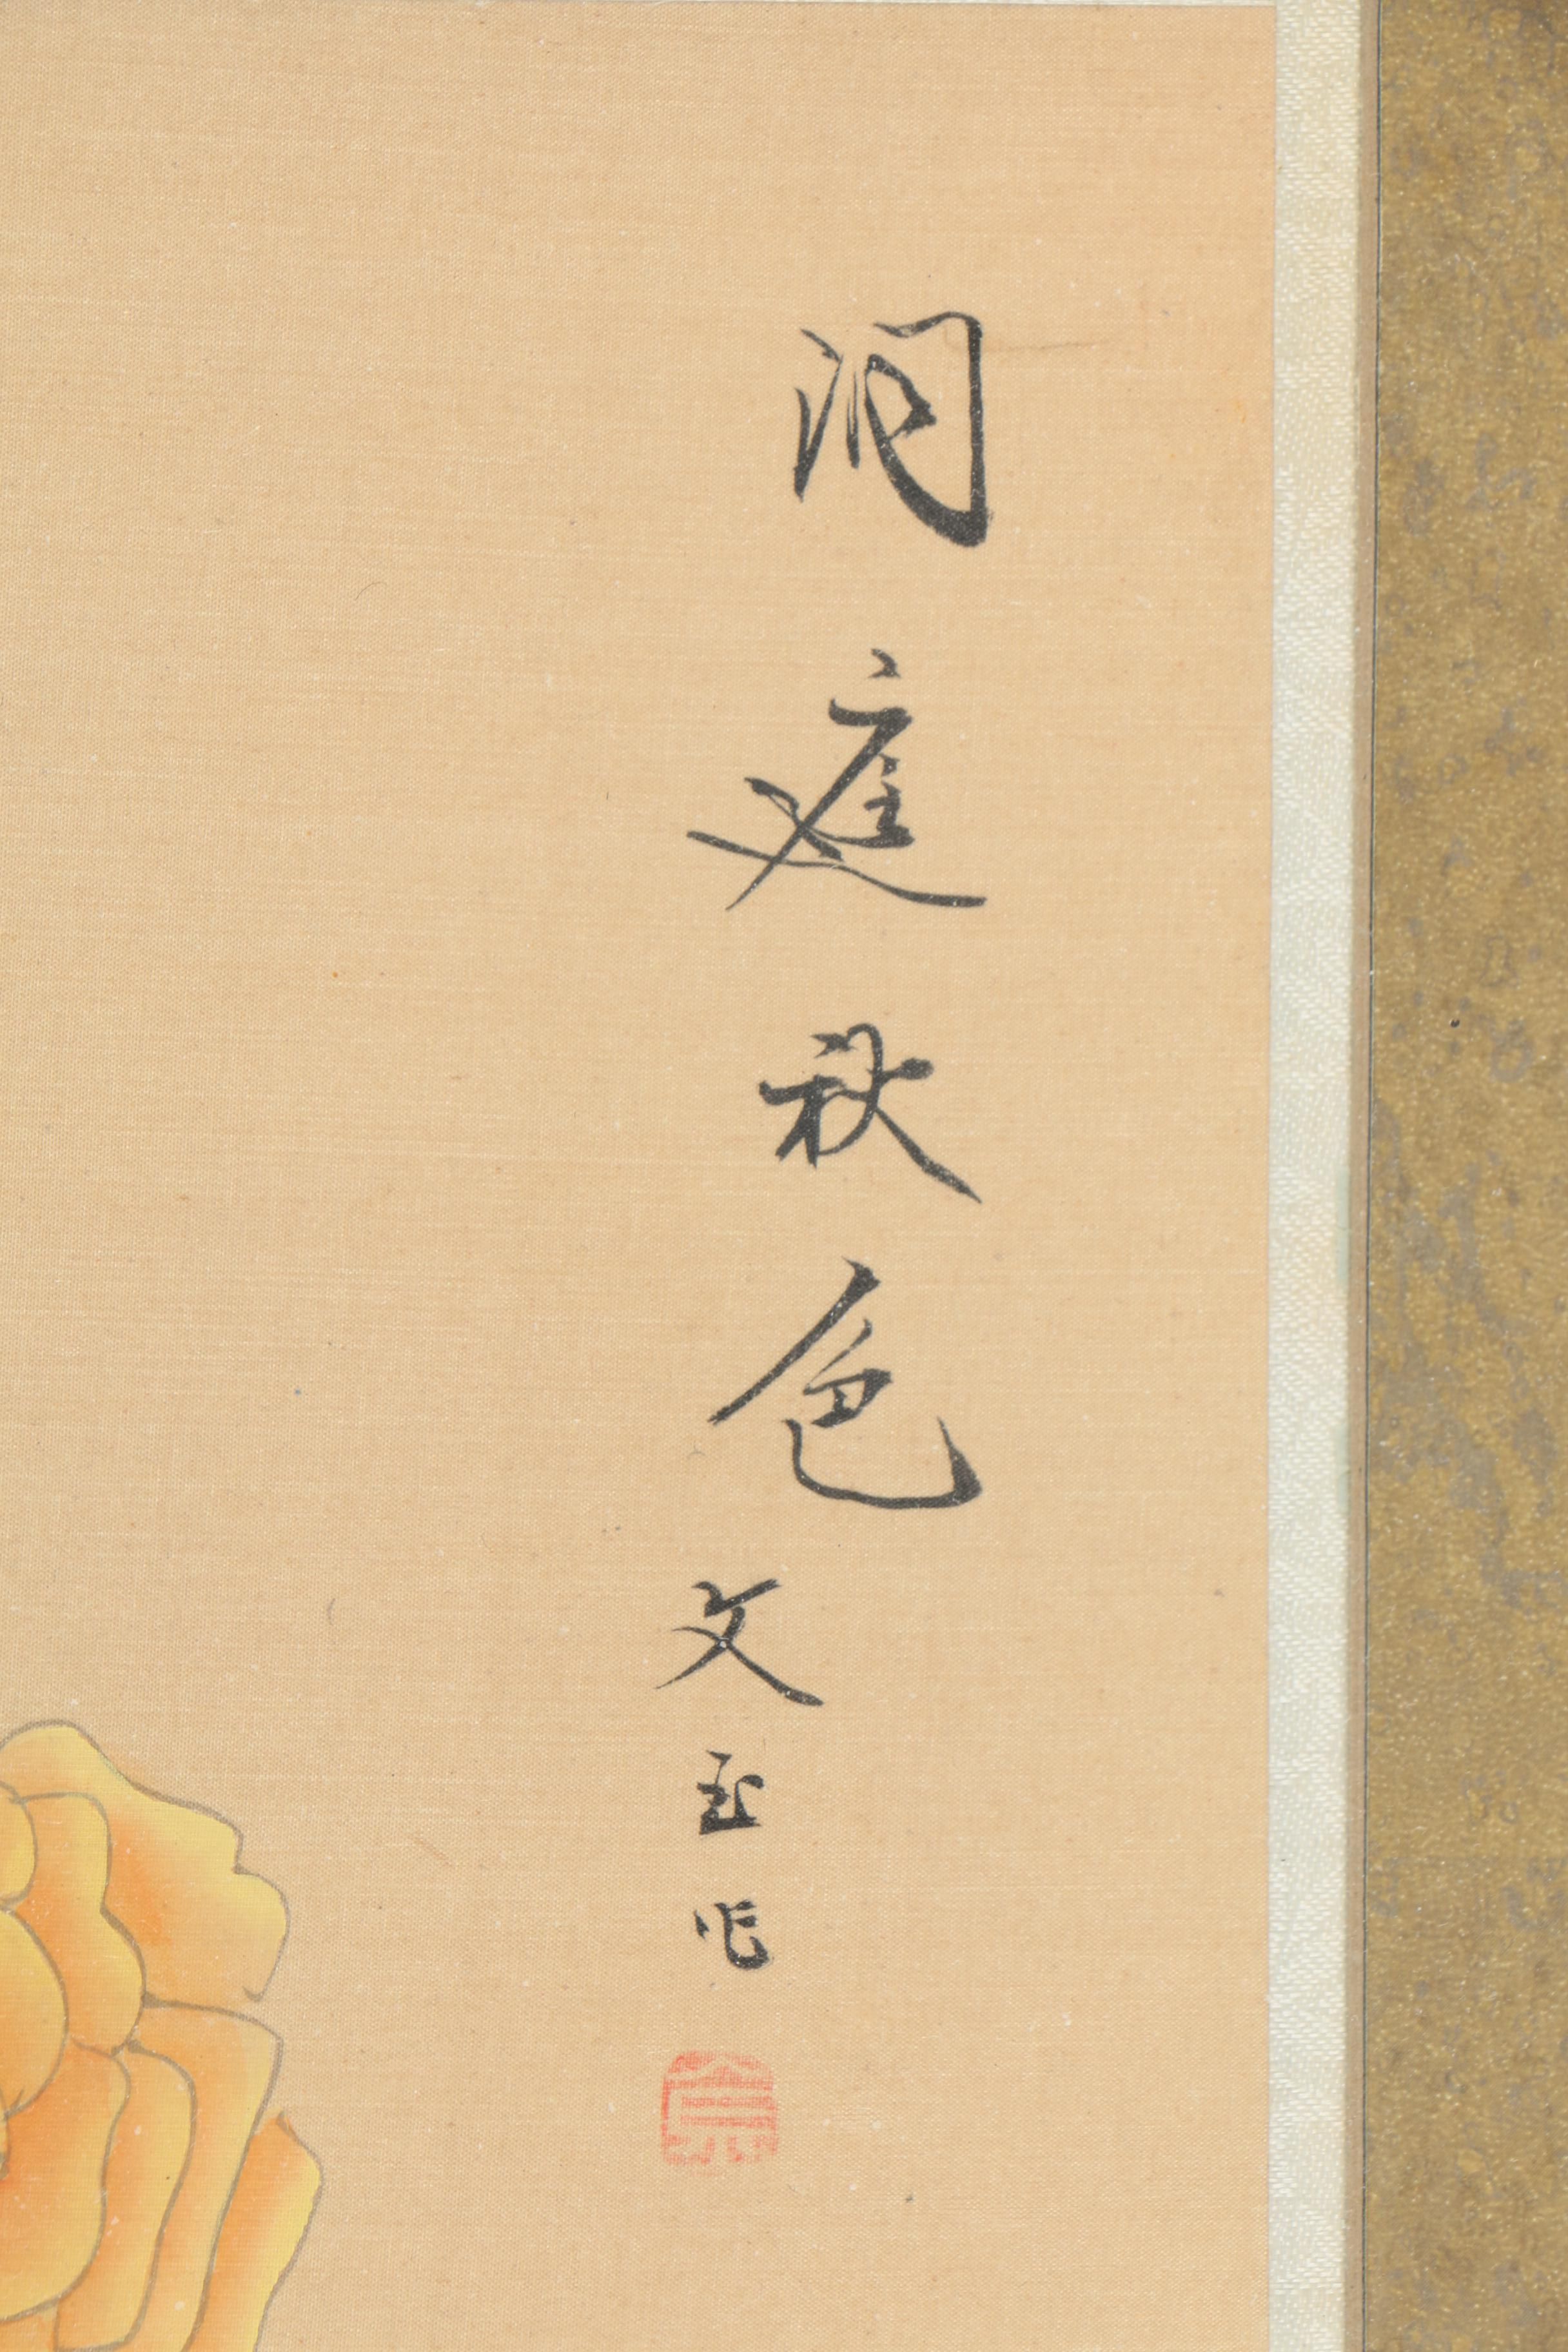 洞庭秋色
文玉作